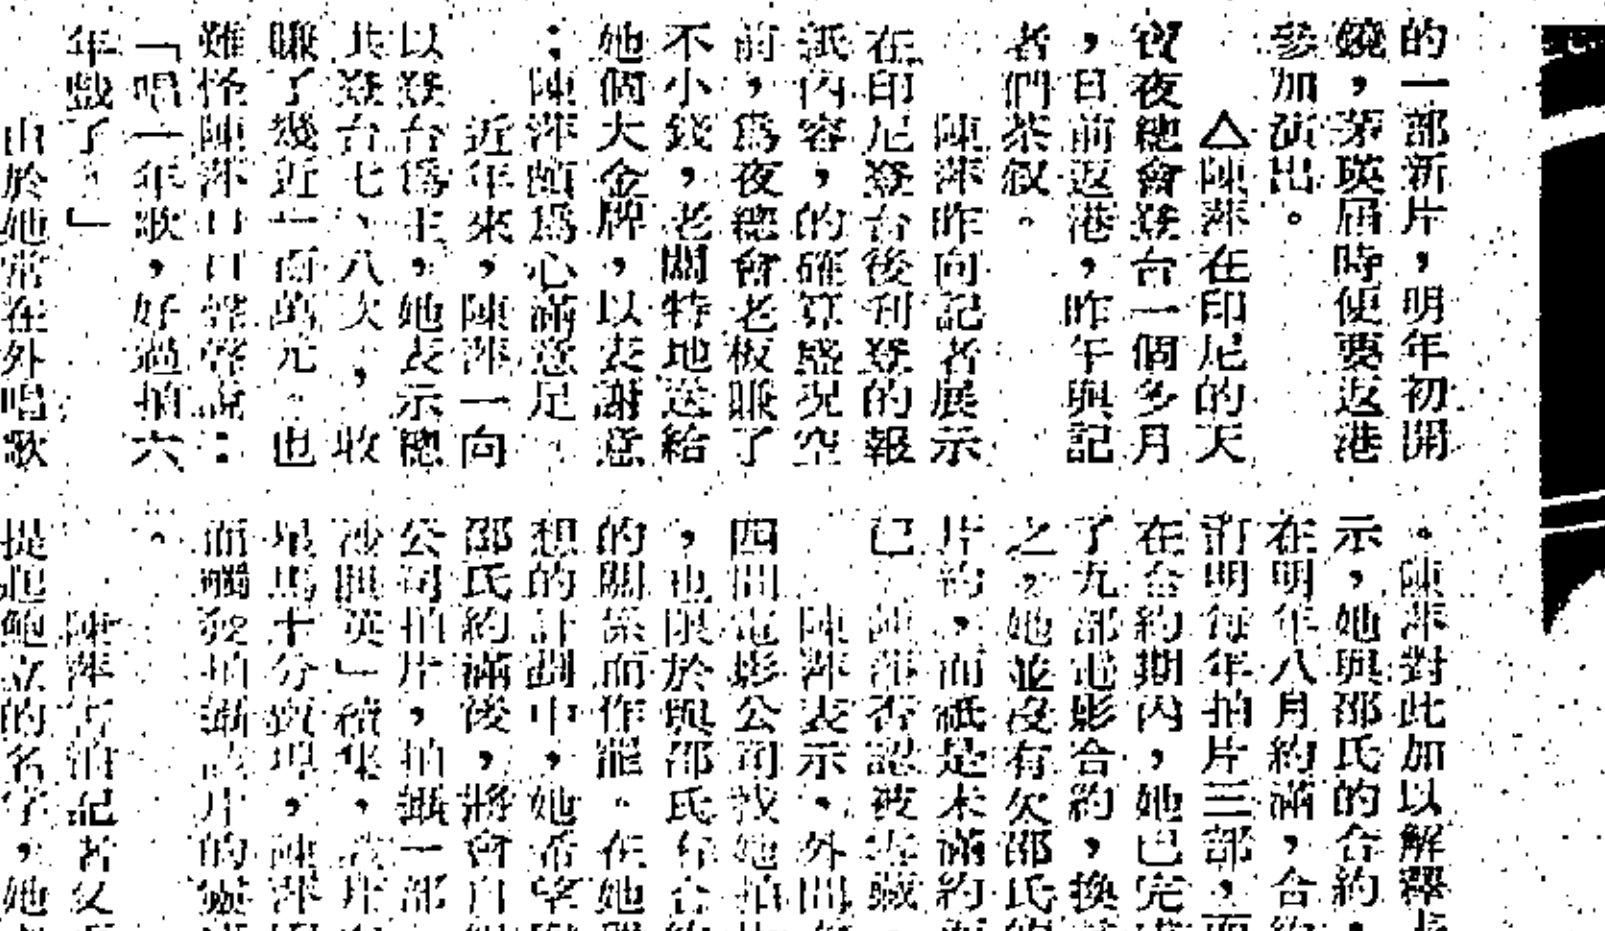 的一部新片，明年初開
鏡，茅瑛屆時便要返港
參加演出。
△陳萍在印尼的天
寶夜總會登台一個多月
，日前返港，昨午與記
者們茶叙。
陳萍昨向記者展示
在印尼登台後刊登的報
紙內容，的確算盛況空
前，爲夜總會老板賺了
不小錢，老闆特地送給
她個大金牌，以表謝意
；陳萍頗爲心滿意足
近年來，陳萍一向
以登台爲主，她表示總
共登台七、八次，收
賺了幾近一百萬元。也
難怪陳萍口口聲聲說：
「唱一年歌，好過拍六
年戲了！」
由於她常在外唱歌
。陳萍對此加以解釋
示，她與邵氏的合約，
在明年八月約滿，合約
訂明每年拍片三部，而
在合約期內，她已完
了九部電影合約，換
之，她並沒有欠邵氏
片約，而祇是未滿約
已
陳萍否認被雪藏
陳萍表示，外間
四間電影公司找她拍
，也限於與邵氏有合約
的關係而作罷。在她
想的計劃中，她希望
邵氏約滿後，將會自
公司拍片，拍攝一部
沙胆英」續集，該片
星馬十分賣埠，陳萍
而觸發拍攝該片的靈
。
陳萍告訴記者
提起鮑立的名字，她